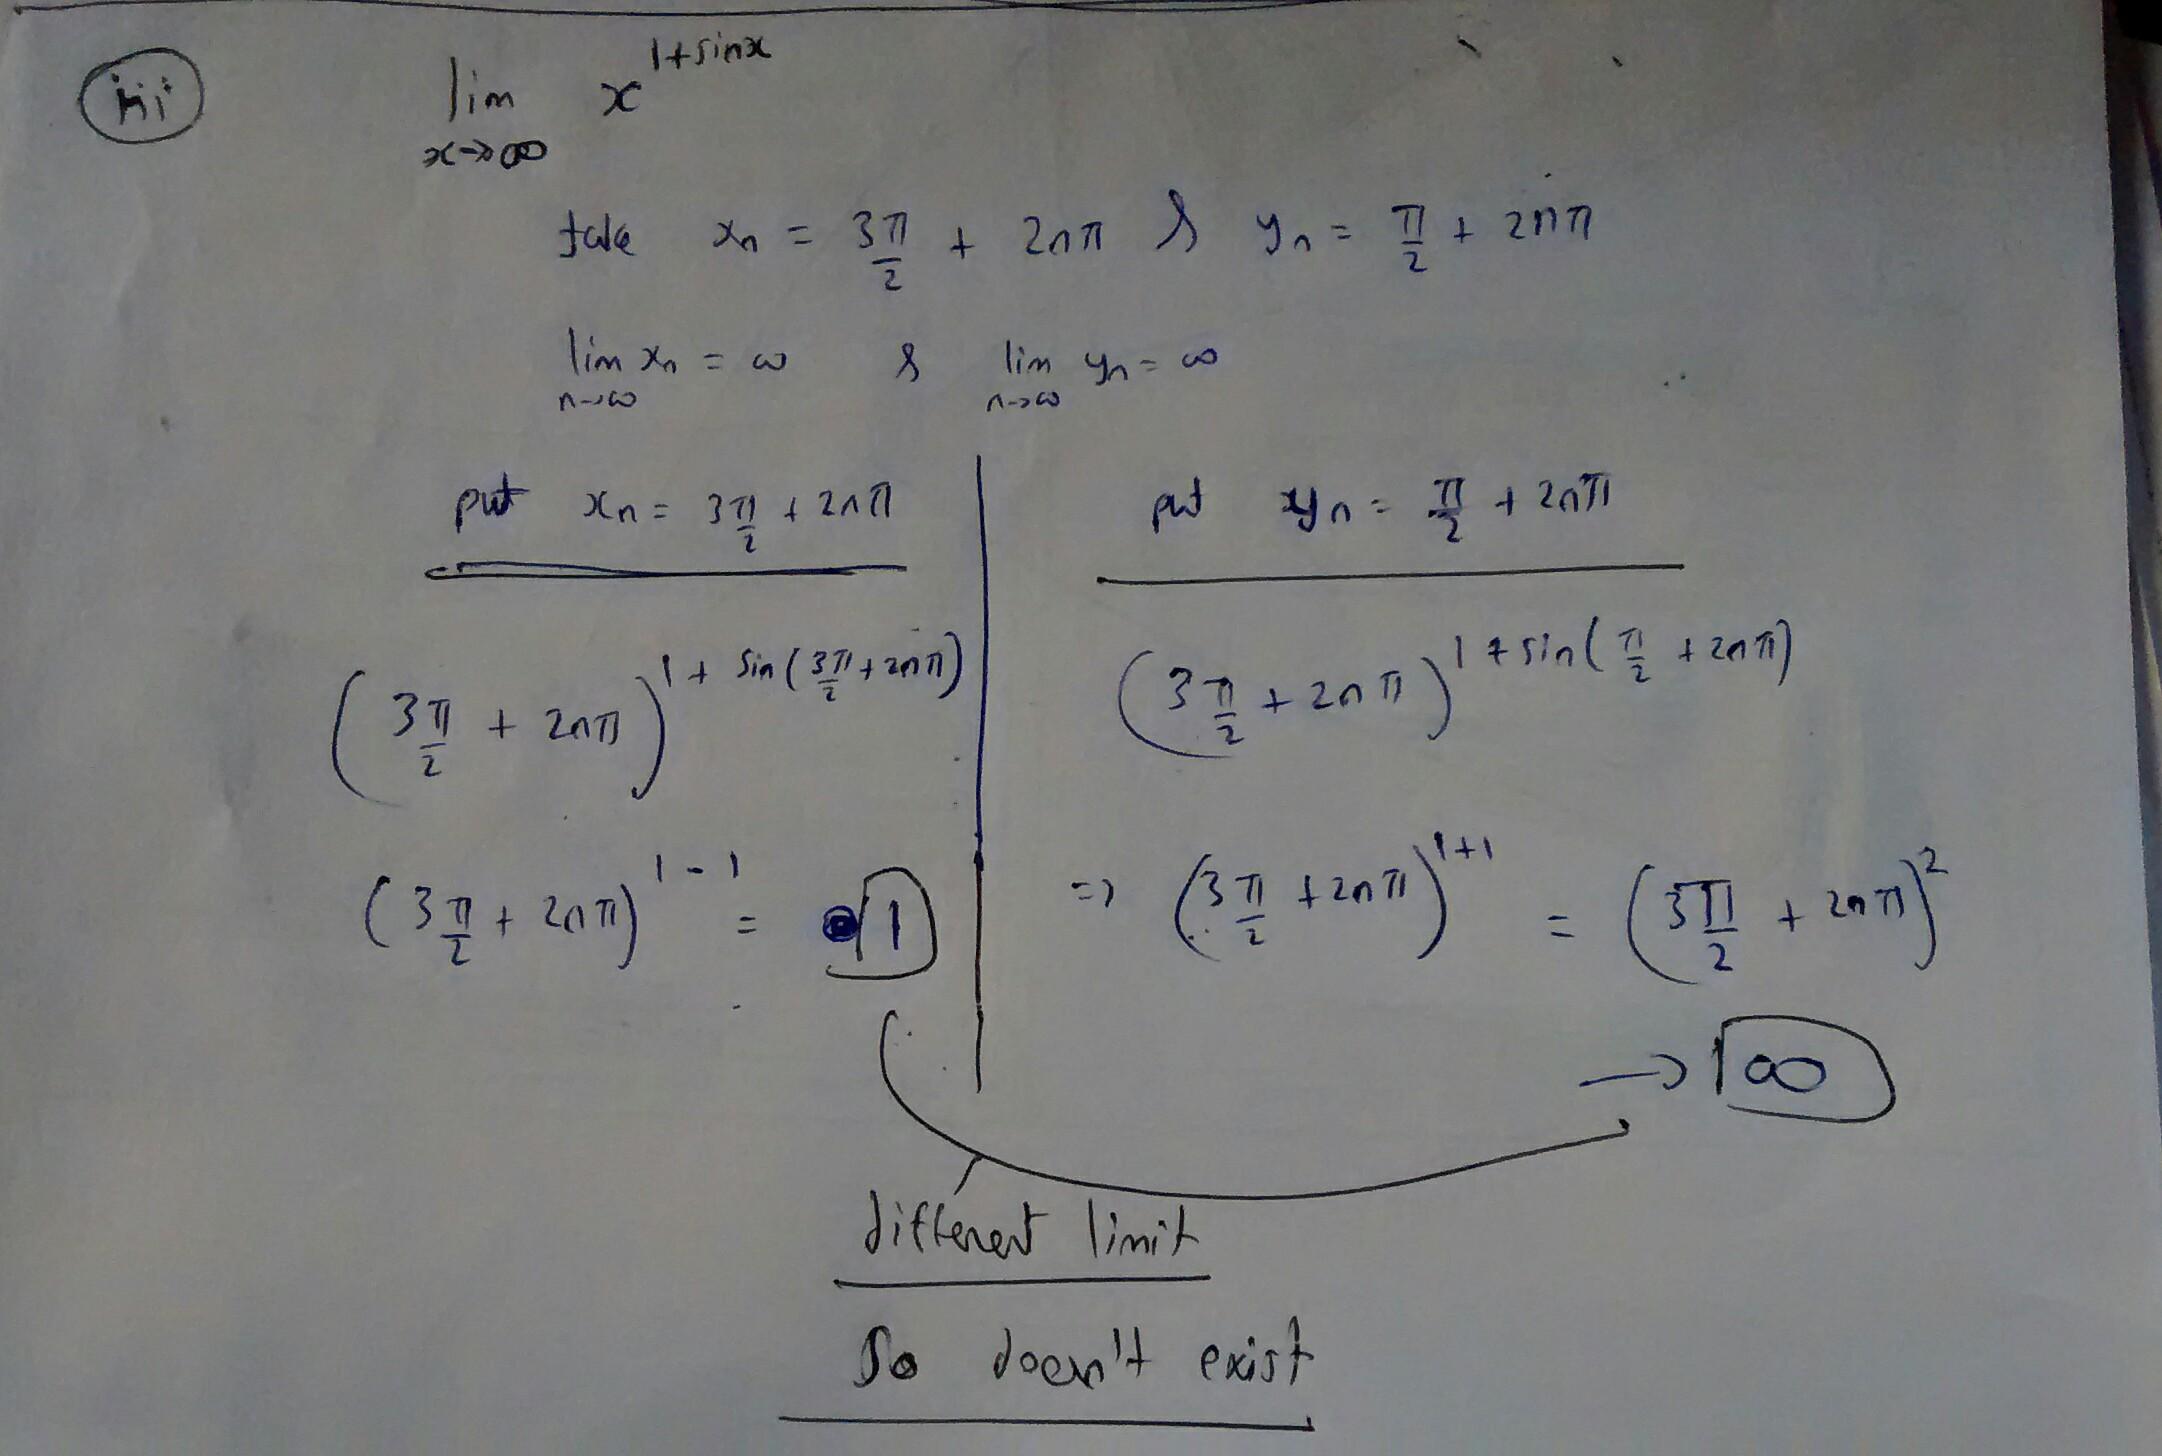 iii lim x→∞ x^(1+sinx)
take xn = 3π/2 + 2nπ & yn = π/2 + 2nπ
lim n→∞ xn = ∞ & lim n→∞ yn = ∞
put xn = 3π/2 + 2nπ
(3π/2 + 2nπ)^(1 + sin(3π/2 + 2nπ))
(3π/2 + 2nπ)^(1-1) = 1
put yn = π/2 + 2nπ
(3π/2 + 2nπ)^(1 + sin(π/2 + 2nπ))
=> (3π/2 + 2nπ)^(1+1) = (3π/2 + 2nπ)^2
→ ∞
different limit
So doesn't exist